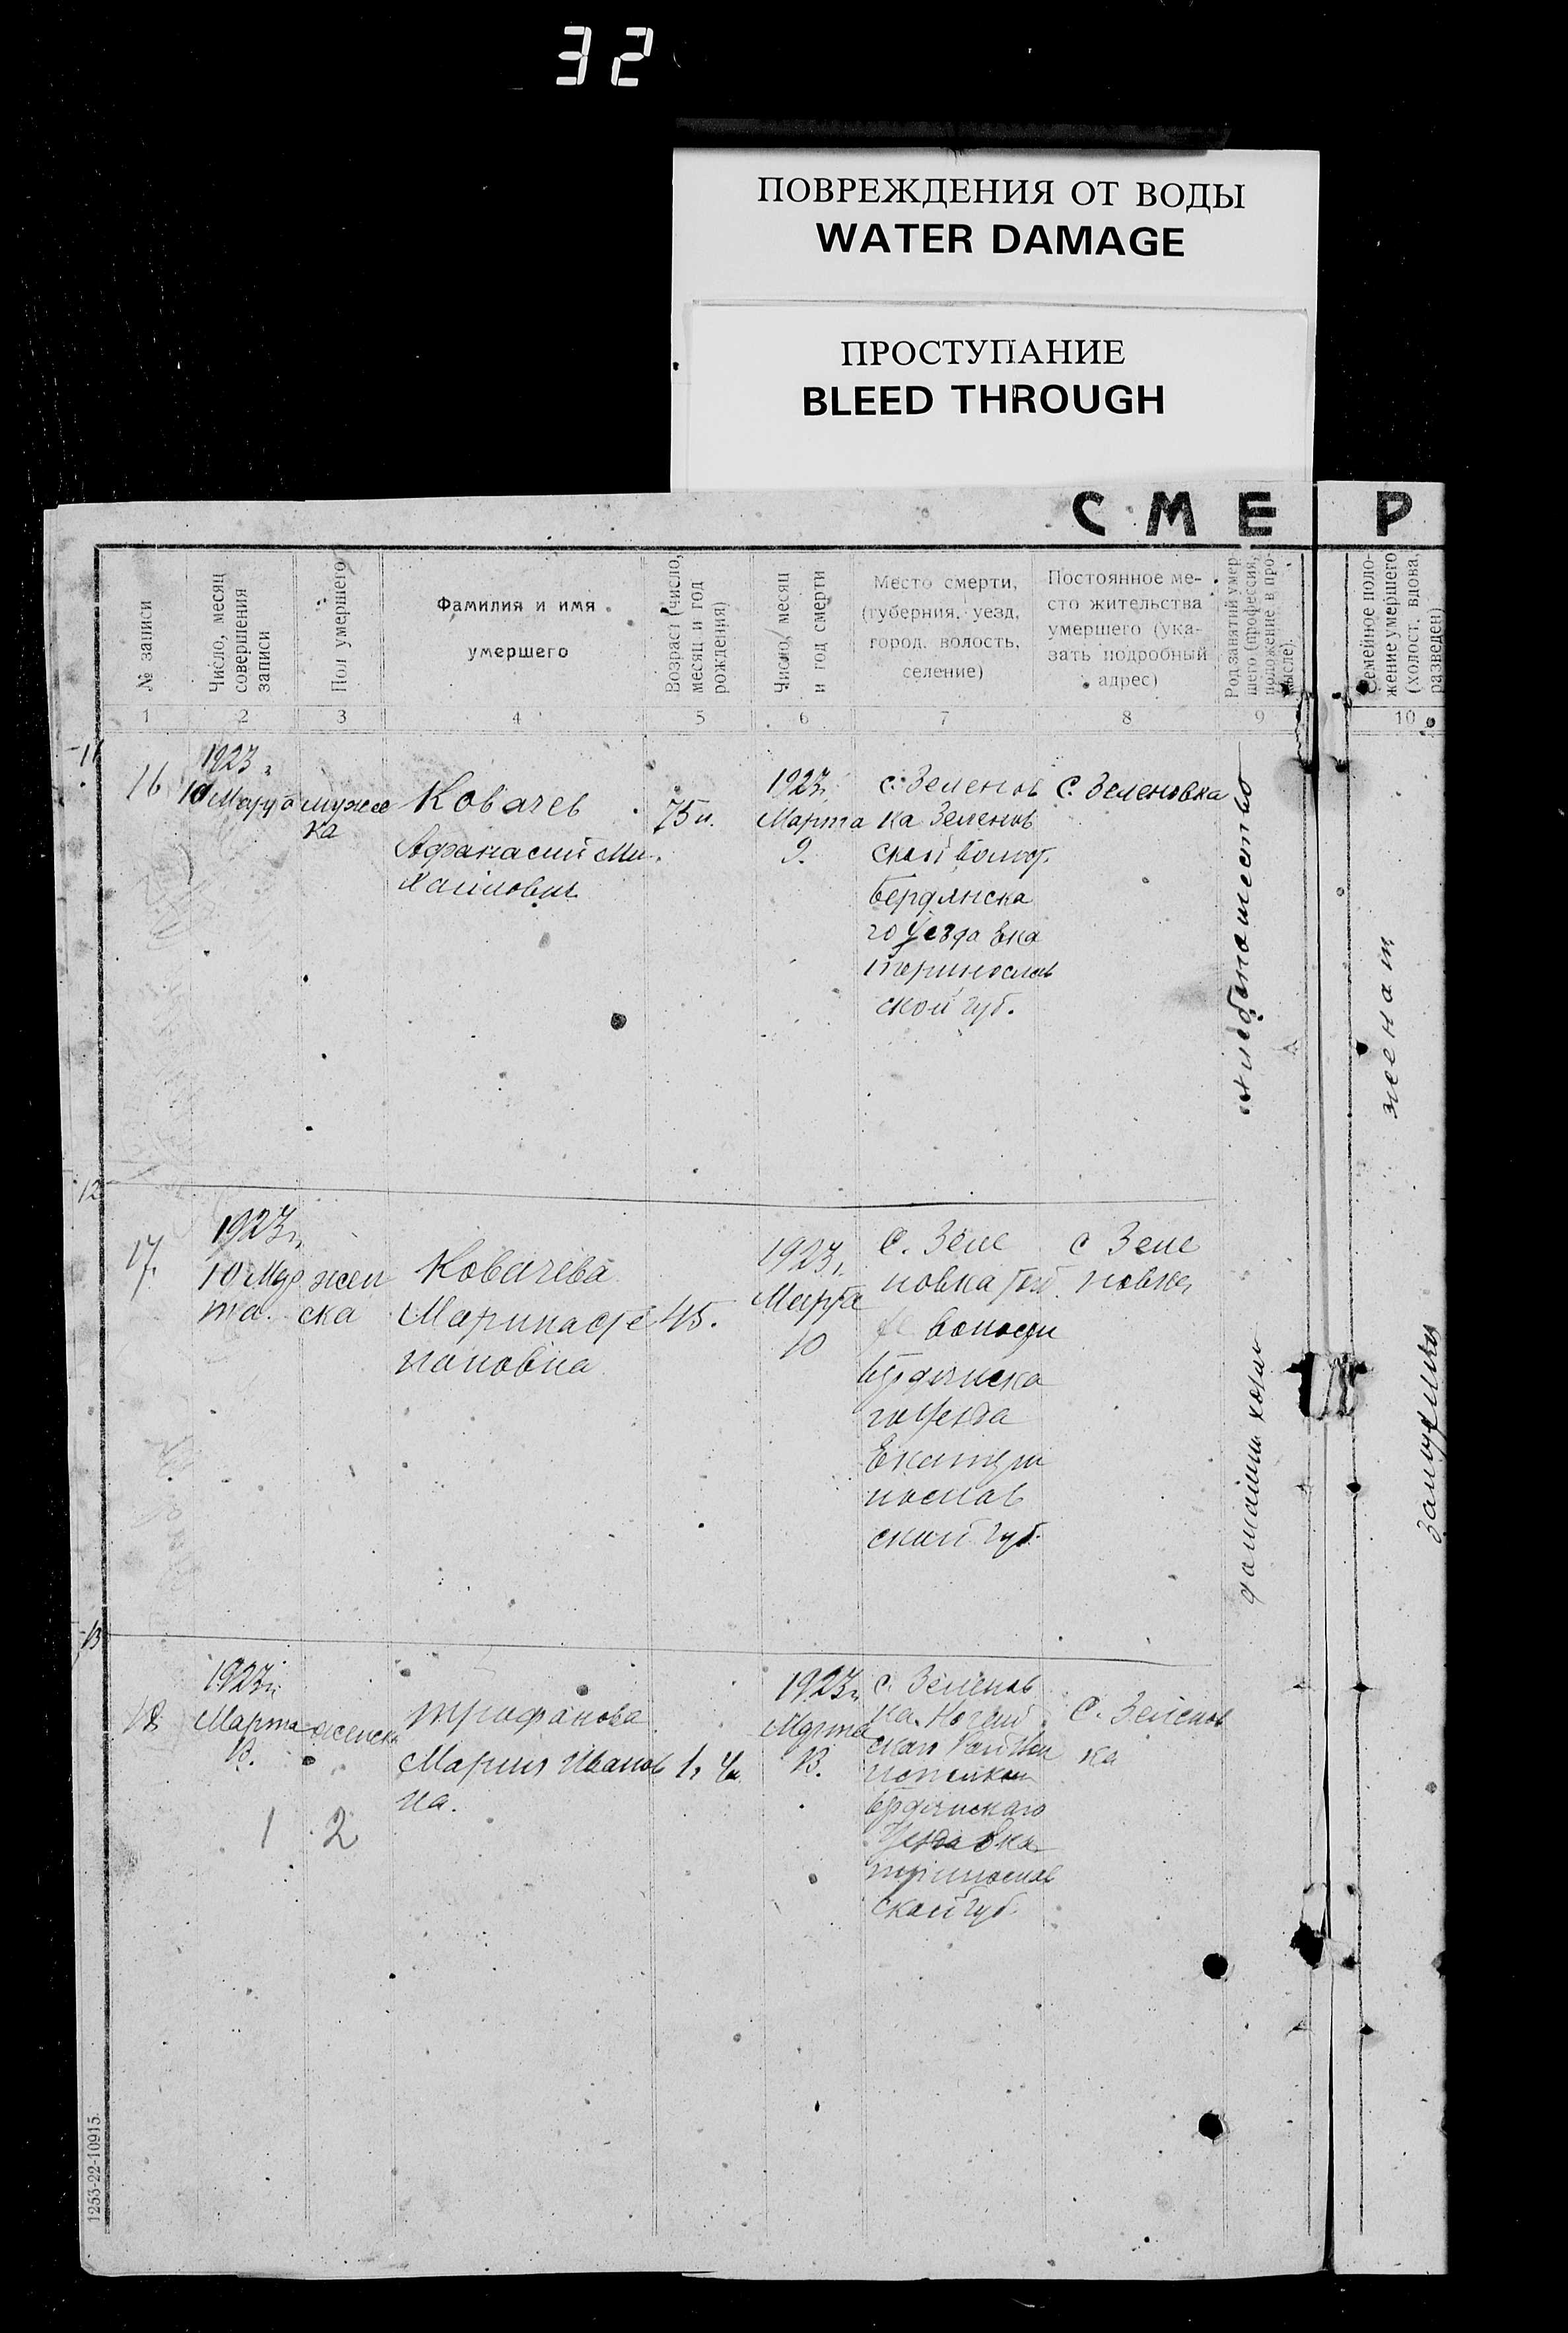 32
ПОВРЕЖДЕНИЯ ОТ ВОДЫ
WATER DAMAGE
ПРОСТУПАНИЕ
BLEED THROUGH
С М Е Р
№ записи
Число, месяц
совершения
записи
Пол умершего
Фамилия и имя
умершего
Возраст (число,
месяц и год
рождения)
Число, месяц
и год смерти
Место смерти,
(губерния, уезд,
город, волость,
селение)
Постоянное ме-
сто жительства
умершего (ука-
зать подробный
адрес)
Род занятий умер-
шего (профессия,
положение в про-
мысле).
Семейное поло-
жение умершего
(холост, вдова,
разведен)
1 2 3 4 5 6 7 8 9 10
11
16
1923 г
10 Марта
мужс
ка
Ковачев
Афанасий Ми
хайлович
75 л.
1923 г.
Марта
9.
с. Зеленов
ка Зеленов
ской волост.
Бердянска
го Уезда Ека
теринослав
ской губ.
С. Зеленовка
хлебопашество
женат
12
17.
1923 г.
10 Мар
та.
жен
ска
Ковачева
Марина Сте
пановна
45.
1923 г.
Марта
10
С. Зеле
новка
волости
Бердянска
го Уезда
Екатери
нослав
ской губ.
с Зеле
новка
домашни хозяй
замужем
13
18
1923 г.
Марта
13.
женска
Трофанова
Мария Иванов
на.
1 г 4 м
1923 г.
Марта
13.
с. Зеленов
ка. Ногай
ской
Бердянскаго
Уезда Ека
теринослав
ской губ.
С. Зеленов
ка
1 2
1253-22-10915.